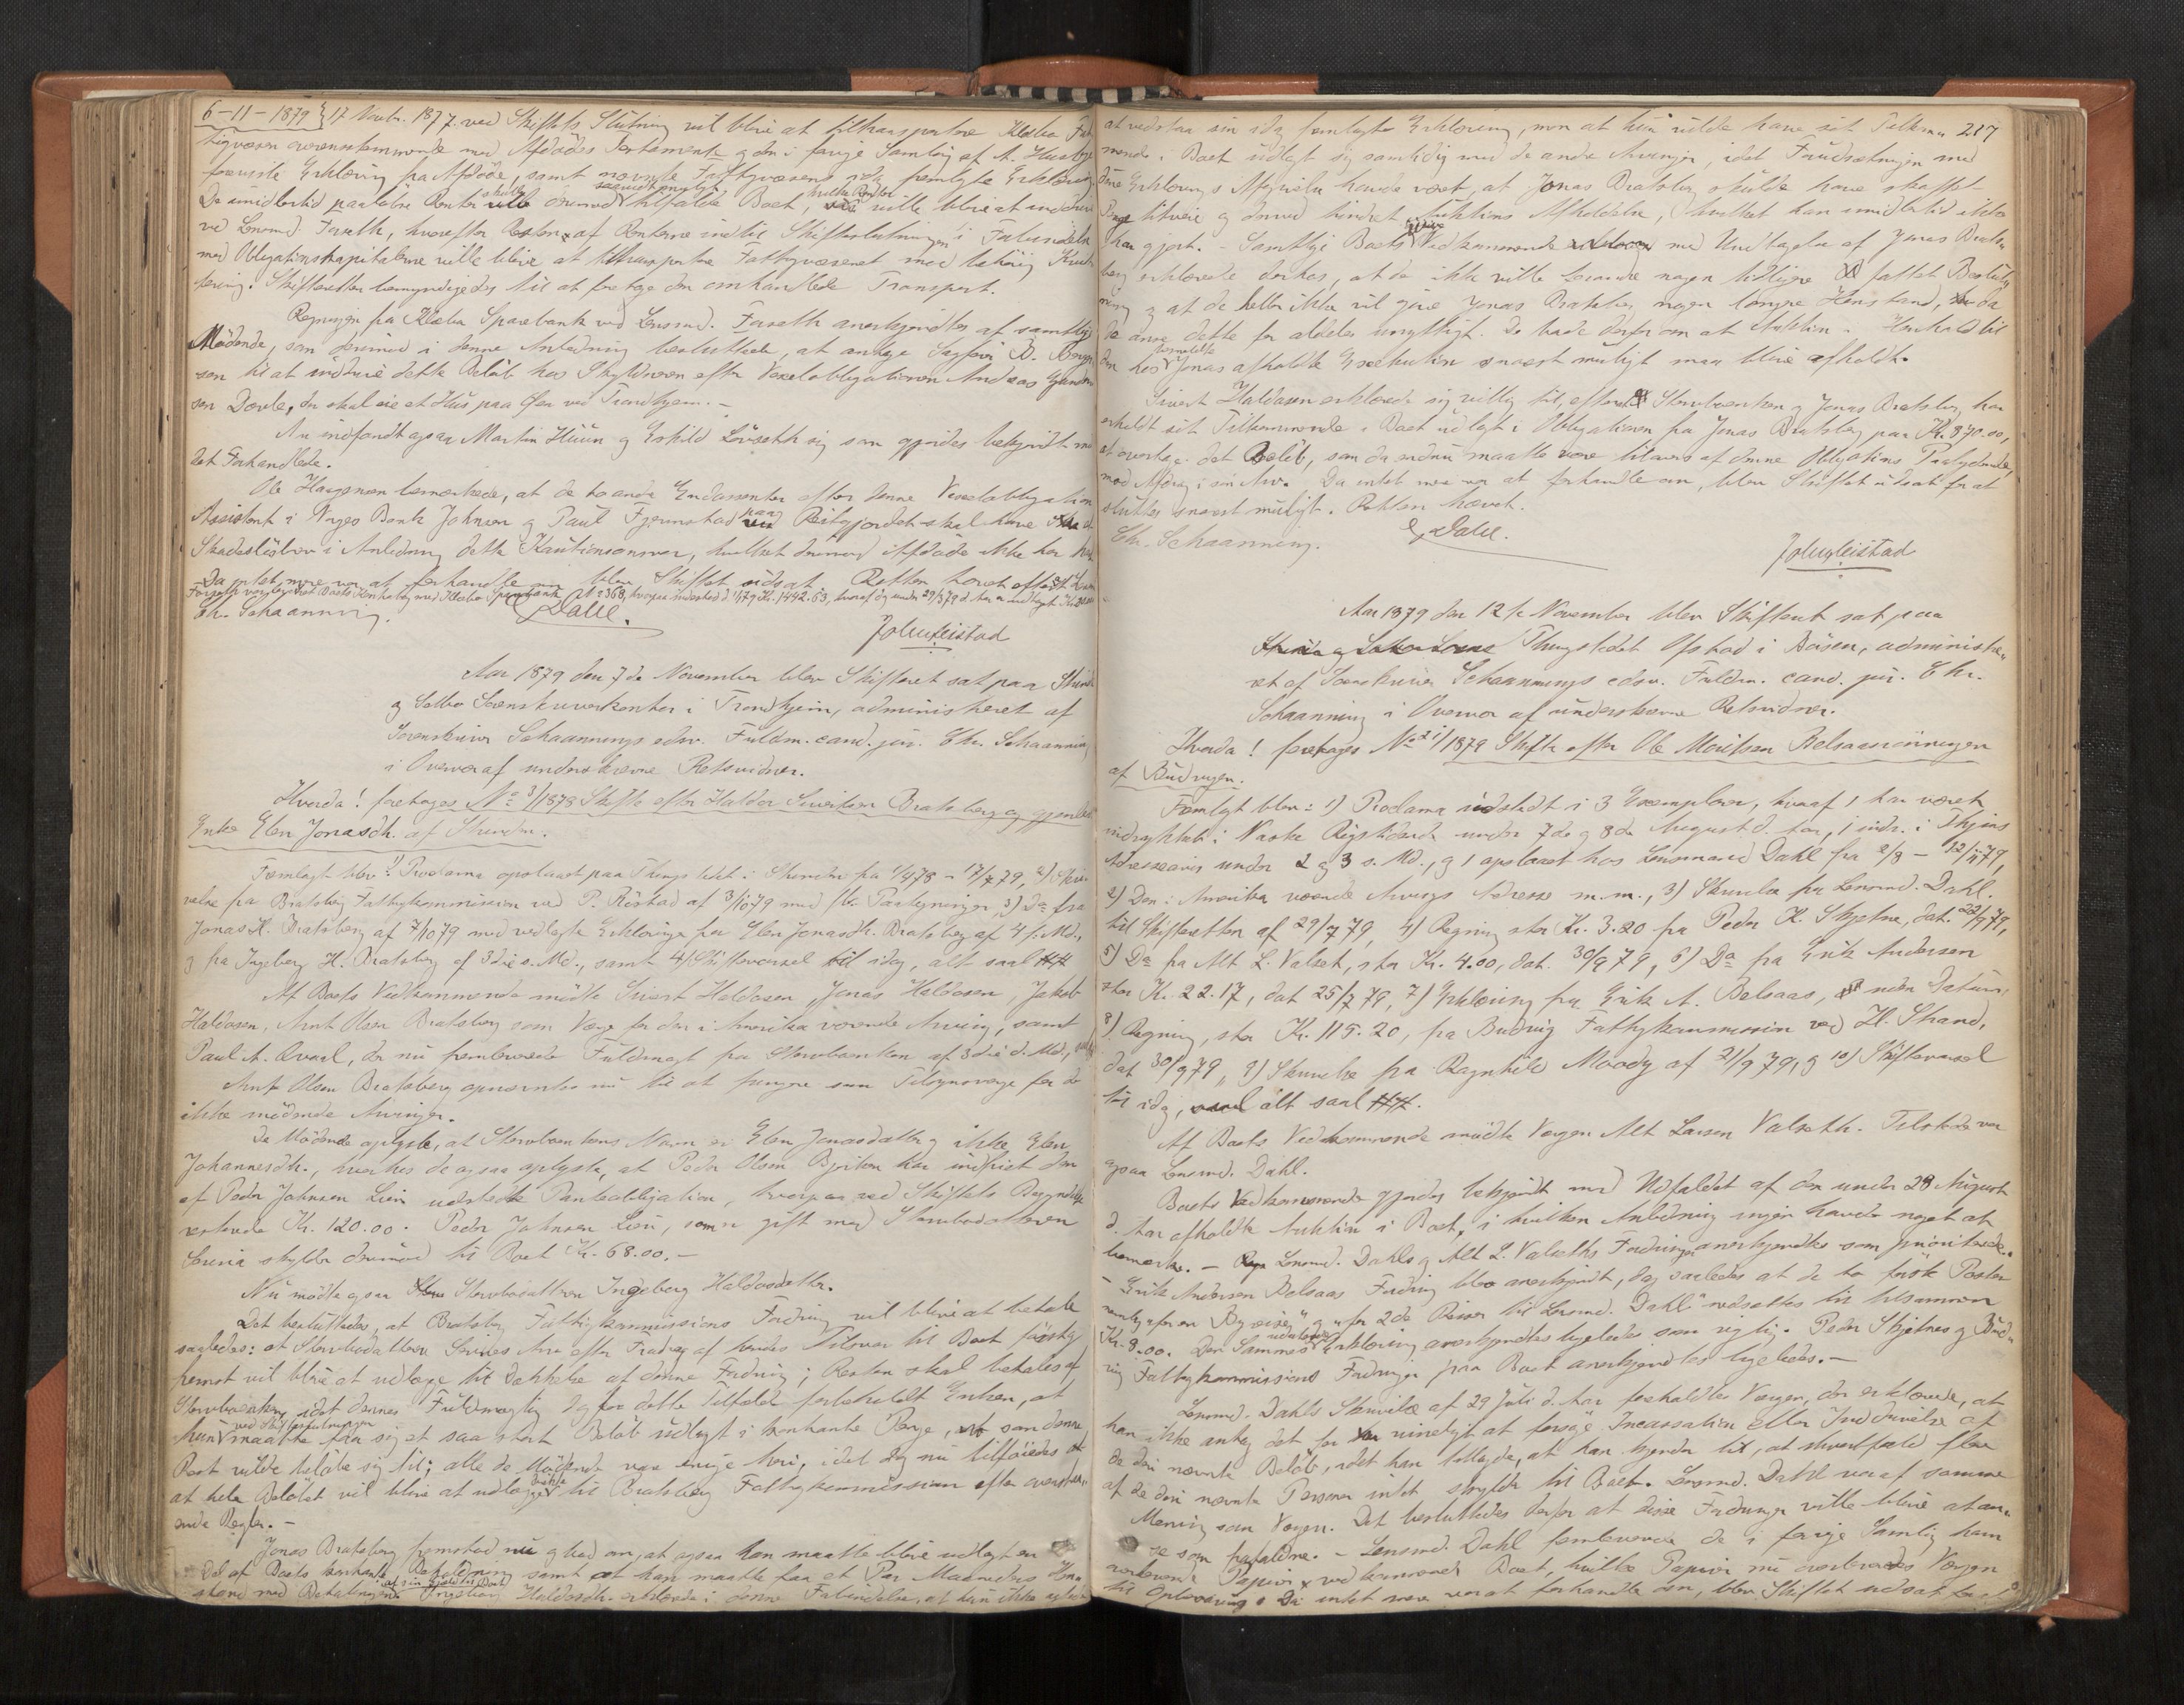 6-11-1879 } 17 Novbr. 1877. ved Skiftets Slutning vil blive at transportere Klæbu Fat-
tigvæsen overensstemmende med Afdødes Testamente og den i forrige Samling af A. Huseby
foreviste Erklæring fra Afdøde, samt nævnte Fattigvæsens idag fremlagte Erklæring.
De imidlertid paaløbne Renter skulle derimod saavidt muligt tilfalde Boet, hvilke Renter ville blive at inddrive
ved Lensmd. Forseth, hvorefter Resten af Renterne indtil Skifteslutningen i Forbindelse
med Obligationskapitalerne ville blive at transportere Fattigvæsenet med behørig Kvit-
tering. Skifteretten bemyndigedes til at foretage den omhandlede Transport.
Regningen fra Klæbu Sparebank ved Lensmd. Forseth anerkjendtes af samtlige
Mødende, som derimod i denne Anledning besluttede, at antage Sagfører B.
sen til at inddrive dette Beløb hos Skyldneren efter Vexelobligationen Andreas
sen Dovle, der skal eie et Hus paa Øen ved Trondhjem. -
Nu indfandt ogsaa Martin Huun og Eskild Løvseth sig som gjordes bekjendt med
det Forhandlede.
Ole Haagensen bemærkede, at de to andre Endossenter efter denne Vexelobligation
Assistent i Norges Bank Johnsen og Paul Fjermstad paa Reitgjerdet skal have
Skadesløsbrev i Anledning dette Kautionsansvar, hvilket derimod Afdøde ikke har havt
Da intet mere var at forhandle om blev Skiftet udsat. Retten hævet efterat
Forseth var leveret Boets Kontrabog med Klæbu Sparebank No 368, hvorpaa indestod d 1/1 79 Kr. 1442.63, hvoraf dog under 29/3 79 d. Aar er udtaget Kr.
Chr. Schaanning. Dahl.
John Leistad
Aar 1879 den 7de November blev Skifteret sat paa Strinde
og Selbo Sorenskriverkontor i Trondhjem, administreret af
Sorenskriver Schaannings edsv. Fuldm. cand. jur. Chr. Schaanning
i Overvær af underskrevne Retsvidner.
Hvorda! foretoges No 3/1878 Skifte efter Haldor Sivertsen Bratsberg og gjenlev.
Enke Elen Jonasdtr. af Strinden.
Fremlagt blev: 1) Proclama opslaaet paa Thingstedet i Strinden fra 1/4 78 - 17/7 79, 2) Skri-
velse fra Bratsberg Fattigkommission ved P. Røstad af 3/10 79 med flere Paategninger, 3) Do fra
Jonas H. Bratsberg af 7/10 79 med vedlagte Erklæringer fra Elen Jonasdtr. Bratsberg af 4 f. Md.,
og fra Ingeborg H. Bratsberg af 3die s. Md., samt 4) Skiftevarsel til idag, alt saal.
Af Boets Vedkommende mødte Sivert Haldosen, Jonas Haldosen, Jakob
Haldosen, Arnt Olsen Bratsberg som Værge for den i Amerika værende Arving, samt
Paul A. Kvaal, der nu fremleverede Fuldmagt fra Stervboenken af 3die d. Md.,
Arnt Olsen Bratsberg opnævntes nu til at fungere som Tilsynsværge for de
ikke mødende Arvinger.
De Mødende oplyste, at Stervboenkens Navn er Elen Jonasdatter og ikke Elen
Johannesdtr., hvorhos de ogsaa oplyste, at Peder Olsen Bjørken har indfriet den
af Peder Johnsen Lien udstedte Panteobligation, hvorpaa ved Skiftets Begyndelse
restrede Kr. 120.00. Peder Johnsen Lien, som er gift med Stervbodatteren
Serina skylder derimod til Boet Kr. 68.00. -
Nu mødte ogsaa Stervbodatteren Ingeborg Haldosdatter.
Det besluttedes, at Bratsberg Fattigkommissions Fordring vil blive at betale
saaledes: at Stervbodatteren Serines Arv efter Fradrag af hendes Tilsvar til Boet først og
fremst vil blive at udlægge til Dækkelse af denne Fordring; Resten skal betales af
Stervboenken, idet dennes Fuldmægtig dog for dette Tilfælde forbeholdt Enken, at
hun ved Skifteslutningen maatte faa sig et saa stort Beløb udlagt i kontante Penge, som denne
Rest vilde beløbe sig til; alle de Mødende var enige heri, idet dog nu tilføiedes
at hele Beløbet vil blive at udlægge til Bratsberg Fattigkommission efter ovenstaa-
ende Regler. -
Jonas Bratsberg fremstod nu og bad om, at ogsaa han maatte blive udlagt en
Del af Boets kontante Beholdning samt at han maatte faa et Par Maaneders Hen-
stand med Betalingen af sin Gjæld til Boet. Ingeborg Haldosdtr. erklærede i denne Forbindelse, at hun ikke agtede
at vedstaa sin idag fremlagte Erklæring, men at hun vilde have sit Tilkom- 217
mende i Boet udlagt sig samtidig med de andre Arvinger, idet Forudsætningen med
denne Erklærings Afgivelse havde været, at Jonas Bratsberg skulde have skaffet
Penge tilveie og derved hindret Auktions Afholdelse, hvilket han imidlertid ikke
har gjort. - Samtlige Boets øvrige Vedkommende med Undtagelse af Jonas Brats-
berg erklærede derhos, at de ikke ville forandre nogen tidligere fattet Beslut-
ning og at de heller ikke vil give Jonas Bratsberg nogen længere Henstand, da
de anse dette for aldeles unyttigt. De bade derfor om at Auktion i Henhold til
den hos bemeldte Jonas afholdte Exekution snarest muligt maa blive afholdt.
Sivert Haldosen erklærede sig villig til, efterat Stervboenken og Jonas Bratsberg har
erholdt sit Tilkommende i Boet udlagt i Obligationen fra Jonas Bratsberg paa Kr. 840.00,
at overtage det Beløb, som da endnu maatte være tilovers af denne Obligations Paalydende,
mod Afdrag i sin Arv. Da intet mere var at forhandle om, blev Skiftet udsat for at
sluttes snarest muligt. Retten hævet.
Chr. Schaanning. Dahl.
John Leistad
Aar 1879 den 12te November blev Skifteret sat paa
Thingstedet Opstad i Børsen, administre-
ret af Sorenskriver Schaannings edsv. Fuldm. cand. jur. Chr.
Schaanning i Overvær af underskrevne Retsvidner.
Hvorda! foretoges No 21/1879 Skifte efter Ole Monsen Belsaasrønningen
af Budvigen.
Fremlagt blev: 1) Proclama udstedt i 3 Exemplarer, hvoraf 1 har været
indrykket i Norske Rigstidende under 7de og 8de August d. Aar, 1 indr. i Thjems
Adresseavis under 2 og 3 s. Md., og 1 opslaaet hos Lensmand Dahl fra 2/8 - 12/11 79,
2) Den i Amerika værende Arvings Adresse m.m., 3) Skrivelse fra Lensmd. Dahl.
til Skifteretten af 29/7 79, 4) Regning stor Kr. 3.20 fra Peder O. Skjetne, dat. 22/9 79,
5) Do fra Alt L. Valset, stor Kr. 4.00, dat. 30/9 79, 6) Do fra Erik Andersen
stor Kr. 22.17, dat 25/7 79, 7) Erklæring fra Erik A. Belsaas, uden Datum,
8) Regning, stor Kr. 115.20, fra Budvig Fattigkommission ved H. Strand,
dat 30/9 79, 9) Skrivelse fra Ragnhild Moody af 21/9 79, og 10) Skiftevarsel
til idag, alt saal.
Af Boets Vedkommende mødte Værgen Alt Larsen Valseth. Tilstede var
ogsaa Lensmd. Dahl.
Boets Vedkommende gjordes bekjendt med Udfaldet af den under 28 August
d. Aar afholdte Auktion i Boet, i hvilken Anledning ingen havde noget at
bemærke. - Lensmd. Dahls og Alt L. Valseths Fordringer anerkjendtes som prioriterede.
- Erik Andersen Belsaas Fordring blev anerkjendt, dog saaledes at de to første Poster
nemlig for en Byreise og for 2de Reiser til Lensmd. Dahl nedsættes til tilsammen
Kr. 8.00. Den Sammes udaterede Erklæring anerkjendtes ligeledes som rigtig. Peder Skjetnes og Bud-
vig Fattigkommissions Fordringer paa Boet anerkjendtes ligeledes. -
Lensmd. Dahls Skrivelse af 29 Juli d. Aar foreholdtes Værgen, der erklærede, at
han ikke antog det for rimeligt at forsøge Incassation eller Inddrivelse af
de deri nævnte Beløb, idet han tillagde, at han kjender til, at ihvertfald flere
af de deri nævnte Personer intet skylder til Boet. Lensmd. Dahl var af samme
Mening som Værgen. Det besluttedes derfor at disse Fordringer ville blive at an-
se som frafaldne. - Lensmd. Dahl fremleverede de i forrige Samling ham
overleverede Papirer vedkommende Boet, hvilke Papirer nu overleveredes Værgen
til Opbevaring. Da intet mere var at forhandle om, blev Skiftet udsat for